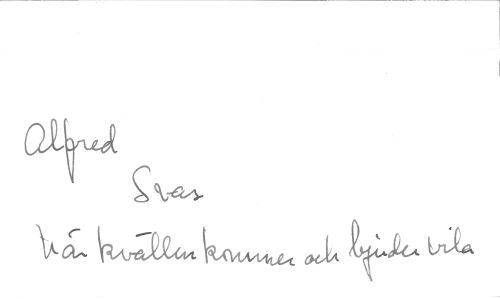 Alfred
Svas
När kvällen kommer och bjuder vila